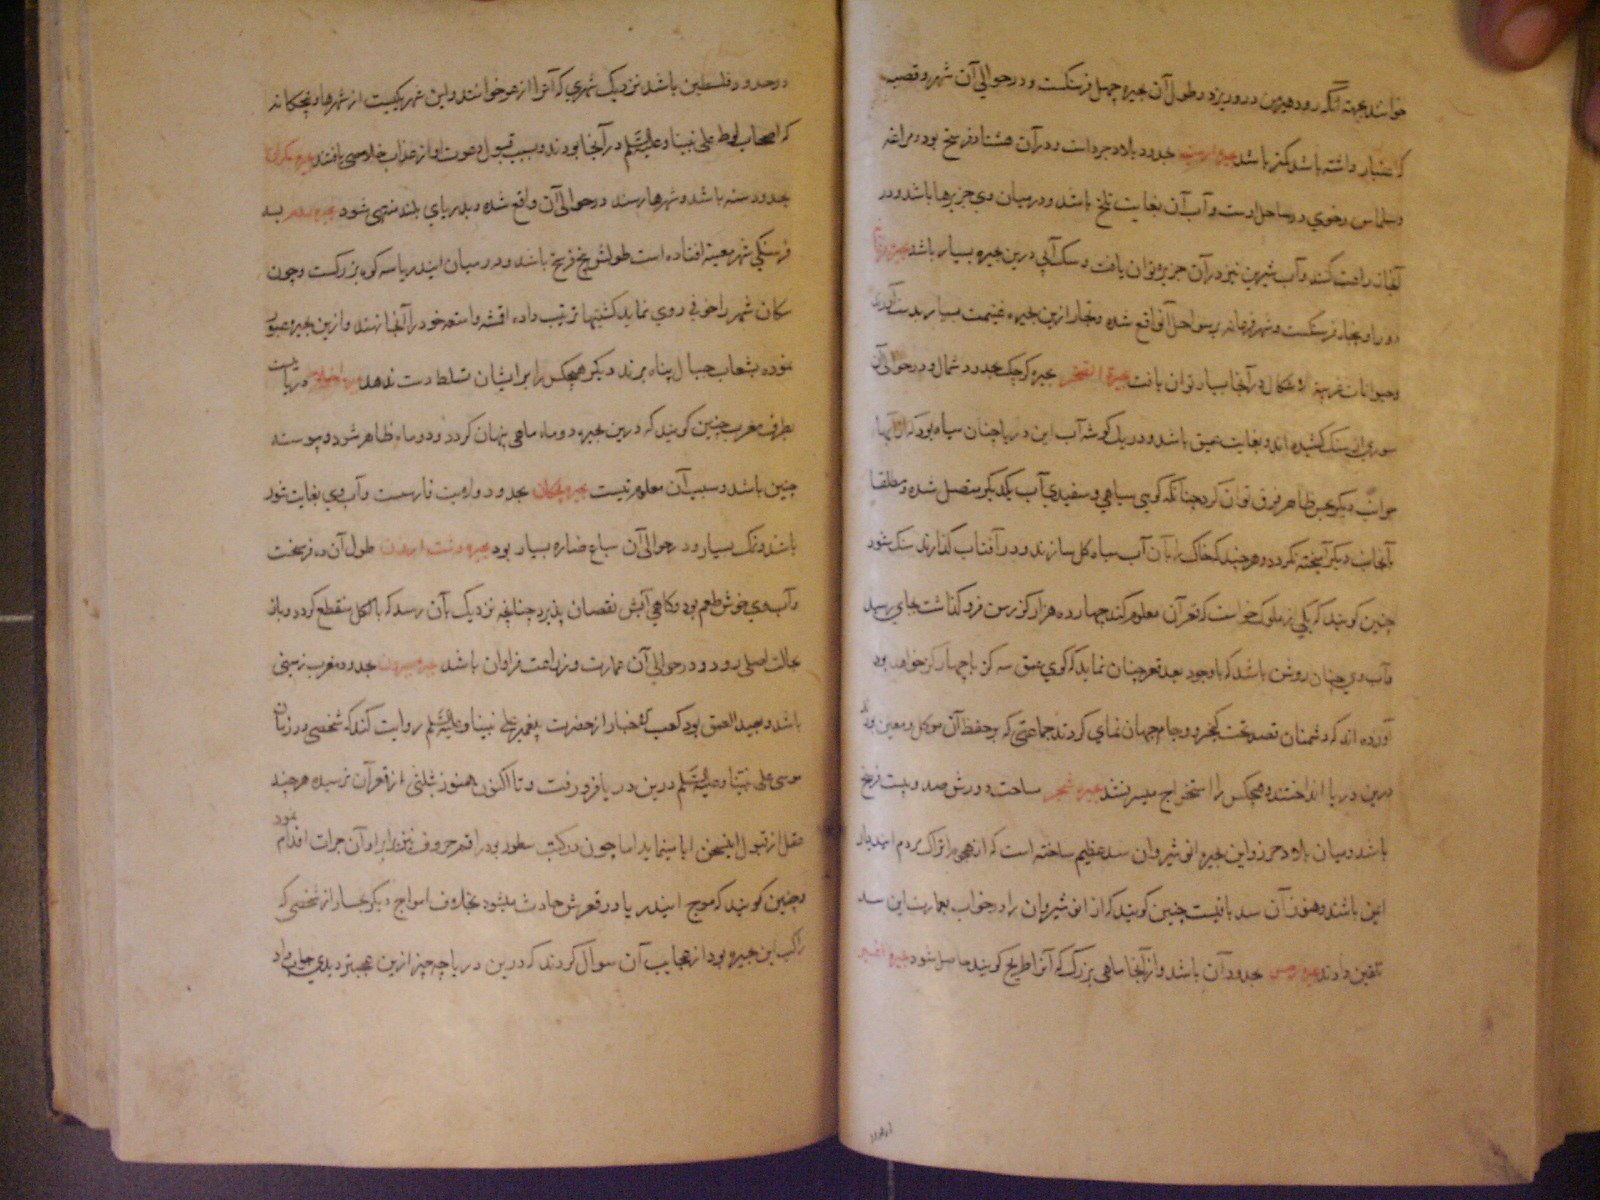 خوانند بجهة آنکه رود هیرمن درو ریزد و طول آن بحیره چهل فرسنکست و در حوالی آن شهر و قصبه
که اعتبار داشته باشد کمتر باشد بحیره ارمنیه بحدود بلاد جرد است و در آن هشتاد فرسخ بود و مراغه
و سلماس و خوی در ساحل اوست و آب آن بغایت تلخ باشد و در میان وی جزیرها باشد و در
آنجا زراعت کنند و آب شیرین نیز در آن جزیره توان یافت و سک آبی درین بحیره بسیار باشد
فرسنکست و شهر بر سواحل آن واقع شده و تجار ازین بحیره غنیمت بسیار بدست آورند
و حیوانات غریبة الاشکال در آنجا بسیار توان یافت بحیرة بحیره کوچک بحدود شمال و در حوالی آن
سوری از سنک کشیده اند و بغایت عمیق باشد و در یک کوشه آب این دریا چنان سیاه بود که از آبها
جوانب دیکر بحس ظاهر فرق توان کرد چنانکه کویی سیاهی و سفیدی آب یکدیکر متصل شده و مطلقا
بآنجانب دیکر آمیخته نکردد و هر چند که خاک را بآن آب سیاه کل سازند و در آفتاب کذارند سنک شود
چنین کویند که یکی از ملوک خواست که قعر آن معلوم کند چهارده هزار کز رسن فرو کذاشت بجای رسید
و آب وی چنان روشن باشد که باوجود بعد قعر چنان نماید که کوی عمق سه کز یا چهار کز خواهد بود
آورده اند که دشمنان قصد تخت کیخسرو و جام جهان نمای کردند جماعتی که بر حفظ آن موکل و معین بودند
درین دریا انداختند و هیچکس را استخراج میسر نشد بحیره مساحت دورش صد و بیست فرسخ
باشد و میان بلاد خزر و این بحیره انوشیروان سد عظیم ساخته است که از هجوم اتراک مردم این دیار
ایمن باشند و هنوز آن سد باقیست چنین کویند که از انوشیروان را در خواب بعمارت این سد
تلقین دادند بحیره بحدود آن باشد و از آنجا ماهی بزرک که آنرا طریخ کویند حاصل شود بحیره
در حدود فلسطین باشد نزدیک شهری که آنرا از عر خوانند و این شهر یکیست از شهرها پنجکانه
که اصحاب لوط علی نبینا و علیه السلم در آنجا بودند و بسبب قبول دعوت او از عذاب خلاصی یافتند بحیره مکران
بحدود سند باشد و شهرها سند در حوالی آن واقع شده و بدریای هند منتهی شود بحیره بسه
فرسنکی شهر معینه افتاده است طولش پنج فرسخ باشد و در میان این دریا سه کوه بزرکست و چون
سکان شهر را خوفی روی نماید کشتیها ترتیب داده اقمشه و امتعه خود را آنجا نهند و ازین بحیره عبور
نموده بشعاب جبال پناه برند و دیکر هیچکس را بر ایشان تسلط دست ندهد بحیره دریائیست
بطرف مغرب چنین کویند که درین بحیره دو ماه ماهی پنهان کردد و دو ماه ظاهر شود و پیوسته
چنین باشد و سبب آن معلوم نیست بحیره بحدود ولایت فارسست و آب وی بغایت شور
باشد و نمک بسیار و در حوالی آن سباع ضاره بسیار بود بحیره دشت ارزن طول آن ده فرسخست
و آب وی خوش طعم بود و کاهی آبش نقصان پذیرد چنانچه نزدیک بآن رسد که بالکل منقطع کردد و باز
بحالت اصلی رود و در حوالی آن عمارت و زراعت فراوان باشد بحیره بحدود مغرب زمین
باشد و بعید العمق بود کعب الاخبار از حضرت پیغمبر علی نبینا و علیه السلم روایت کند که شخصی در زمان
موسی علی نبینا و علیه السلم درین دریا فرو رفت و تا اکنون هنوز بثلثی از قعر آن نرسیده هر چند
عقل از قبول اینسخن ابا مینماید اما چون در کتب مسطور بود راقم حروف نیز بر ایراد آن جرات اقدام نمود
و چنین کویند که موج این دریا در قعرش حادث میشود بخلاف امواج دیکر بحار از شخصی که
راکب این بحیره بود از عجایب آن سوال کردند که درین دریا چه چیز ازین عجبتر دیدی جواب داد